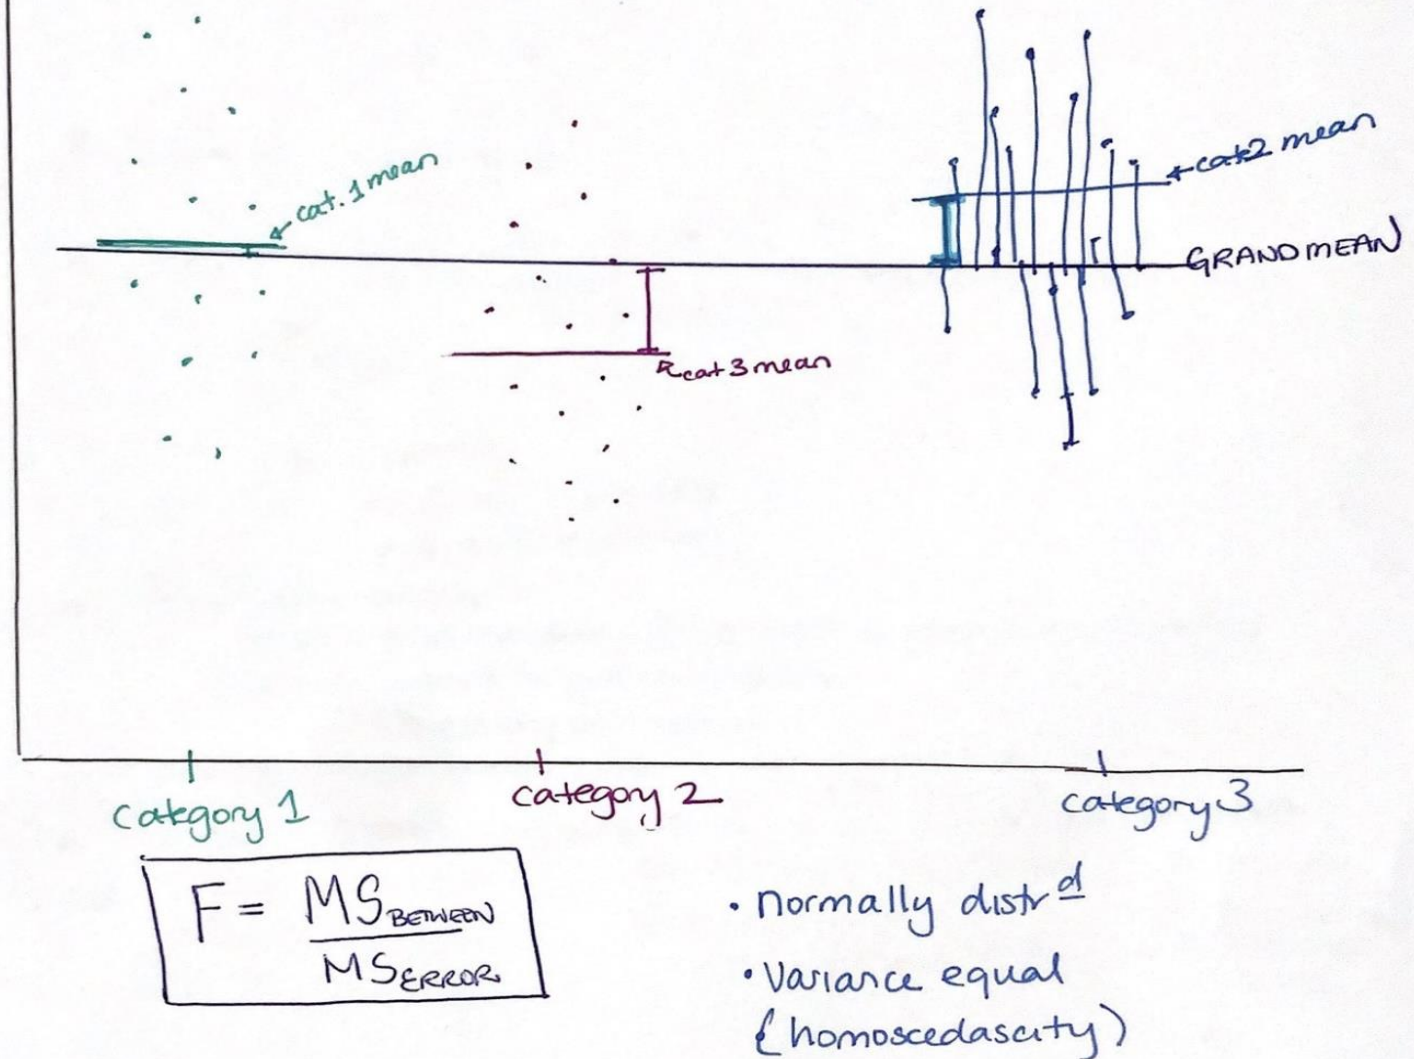 cat. 1 mean
←cat2 mean
GRAND MEAN
cat 3 mean
category 1
category 2
category 3
F = MS BETWEEN
MS ERROR
• normally distrd
• Variance equal
(homoscedascity)